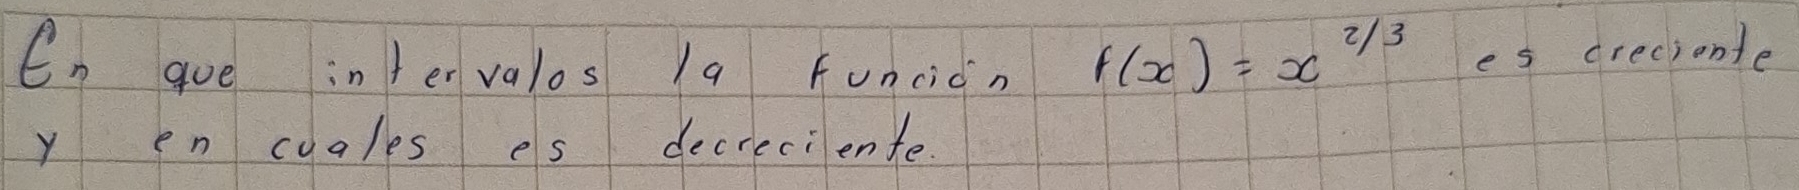 En que intervalos la función f(x) = x^2/3 es creciente
y en cuales es decreciente.